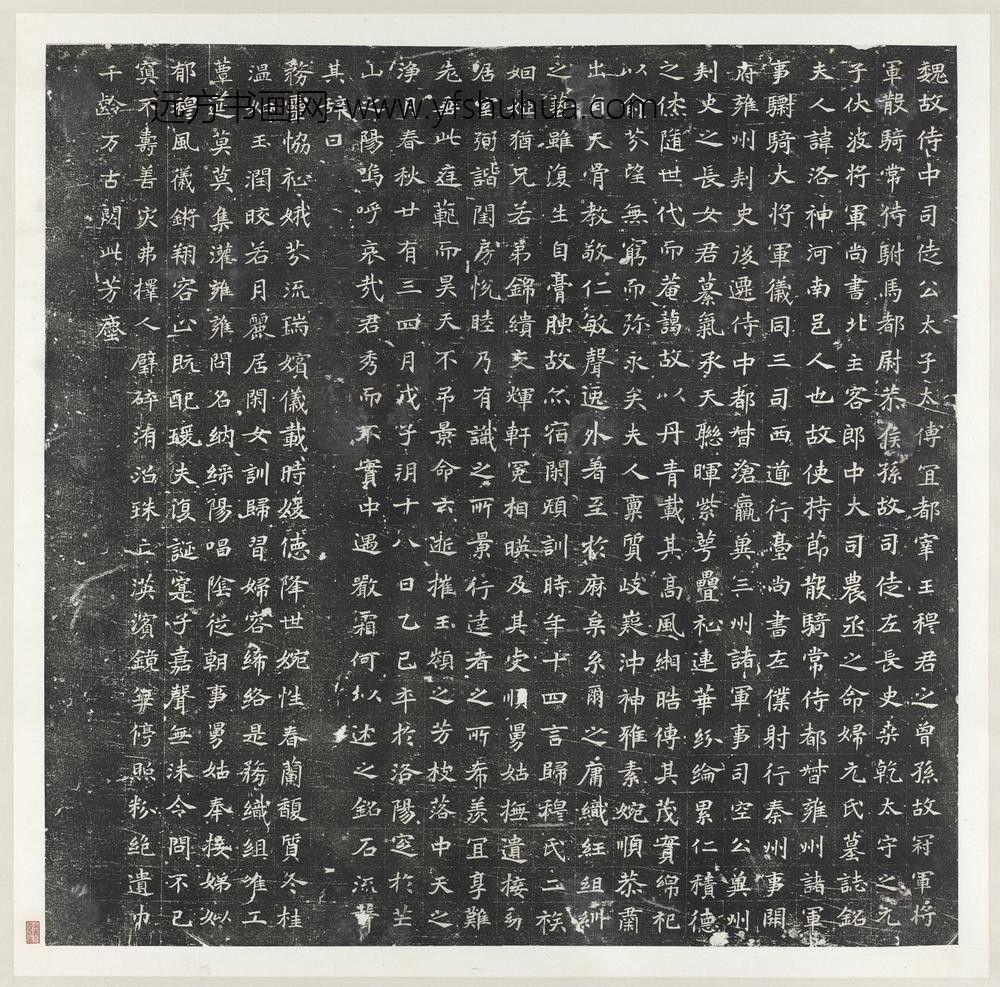 魏故侍中司徒公太子太傅宜都宰王穆君之曾孫故冠軍將
軍散騎常侍駙馬都尉恭侯孫故司徒左長史桑乾太守之元
子伏波將軍尚書北主客郎中大司農丞之命婦元氏墓誌銘
夫人諱洛神河南邑人也故使持節散騎常侍都督雍州諸軍
事驃騎大將軍儀同三司西道行臺尚書左僕射行秦州事開
府雍州刺史後遷侍中都督滄瀛冀三州諸軍事司空公冀州
刺史之長女君纂氣承天聯暉紫萼疊祉連華紛綸累仁積德
之佐隨世代而菴藹故以丹青載其高風緗晧傳其茂實綿祀
以斜芬望無窮而弥永矣夫人稟質岐嶷沖神雅素婉順恭肅
出自天骨教敬仁敏聲逸外著至於麻枲糸爾之庸織紝組紃
之藝雖復生自膏腴故忽宿閑頭訓時年十四言歸穆氏二族
姻媾猶兄若弟錦繢交輝軒冕相暎及其安順舅姑撫遺接
居 弼諧閨房悅睦乃有識之所景行達者之所希羨宜享難
老 此庭範而昊天不吊景命云逝摧玉顏之芳枝落中天之
淨 春秋廿有三四月戊子朔十八日乙巳卒於洛陽窆於芒
山 陽嗚呼哀哉君秀而不實中遇嚴霜何以述之銘石流聲
其辭曰
務靈協祉娥芬流瑞嬪儀載時媛德降世婉性春蘭馥質冬桂
温如玉潤晈若月麗居閑女訓歸習婦容締絡是務織組唯工
蕈延莫莫集灌雍雍問名納綵陽唱陰從朝事舅姑奉接娣姒
郁穆風儀鏘翔容止既配瑗夫復誕蹇子嘉聲無沬令問不已
寘不壽善灾弗擇人璧碎洧沿珠亡漢濱鏡無停照粉絕遺巾
千齡万古閟此芳塵
远方书画网 www.yfshuhua.com